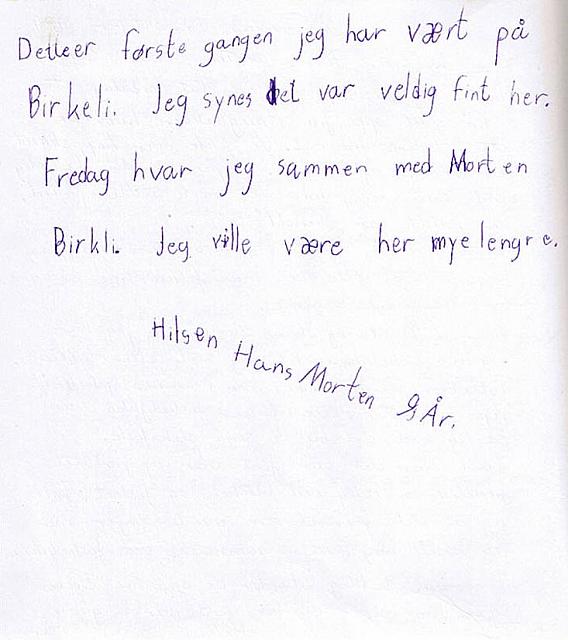 Detteer første gangen jeg har vært på
Birkeli. Jeg synes det var veldig fint her.
Fredag hvar jeg sammen med Morten
Birkli. Jeg ville være her mye lengre.
Hilsen Hans Morten 9 År.